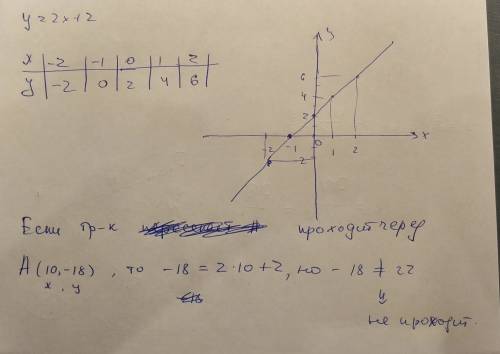 y = 2x+2
x | -2 | -1 | 0 | 1 | 2
y | -2 | 0 | 2 | 4 | 6
y
6
4
2
-2 -1 0 1 2 x
-2
Если гр-к проходит через
A (10, -18), то -18 = 2·10+2, но -18 ≠ 22
x, y
⇓
не проходит.